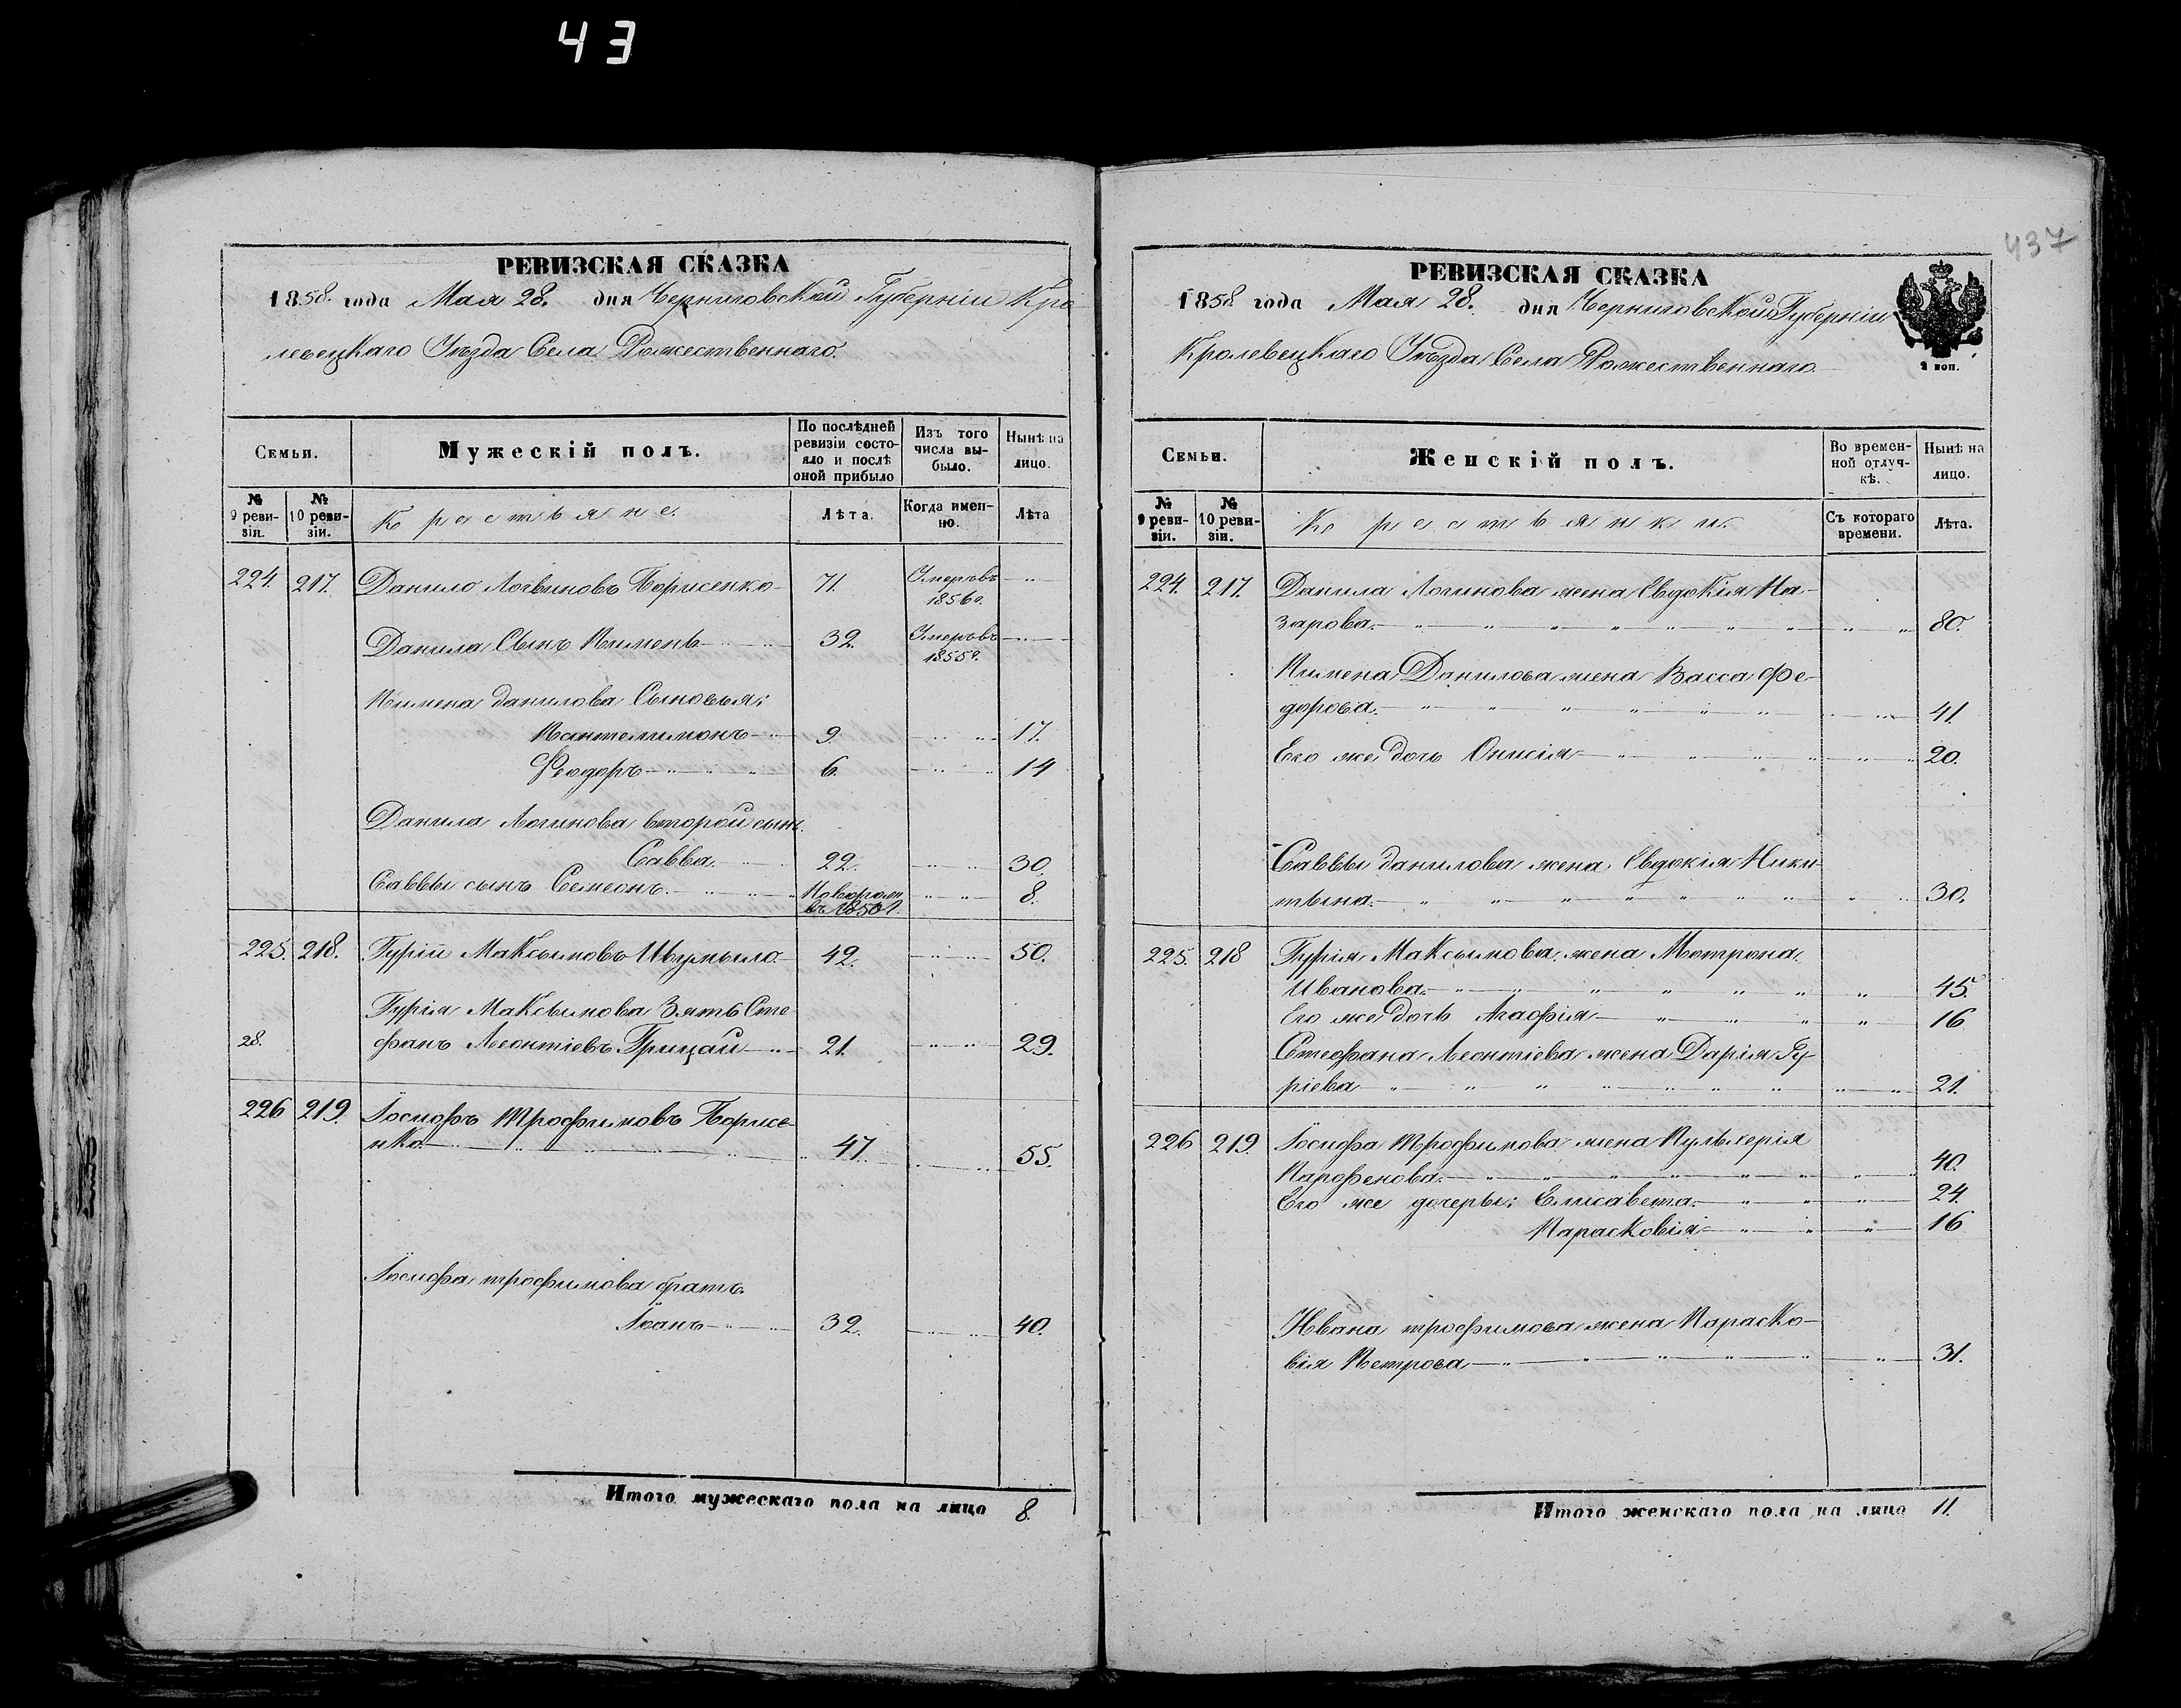 43
РЕВИЗСКАЯ СКАЗКА
1858. года Мая 28. дня Черниговской Губерніи Кро
левецкаго Уѣзда Села Рожественнаго.
Семьи.
Мужескій полъ.
По послѣдней
ревизіи состо-
яло и послѣ
оной прибыло
Изъ того
числа вы-
было.
Нынѣ на
лицо.
№
9 реви-
зіи.
№
10 реви-
зіи.
Крестьяне.
Лѣта.
Когда имен-
но.
Лѣта
224. 217. Данило Логвиновъ Борисенко 71. Умеръ въ
1856 г.
Данила Сынъ Пименъ 32. Умеръ въ
1855 г.
Пимена Данилова Сыновья:
Пантелимонъ 9. 17.
Феодоръ 6. 14
Данила Логинова второй сынъ
Савва. 22. 30.
Саввы сынъ Семеонъ. Новорожд. 8.
въ 1850 г.
225. 218. Гурій Максимовъ Шумыло 42. 50.
Гурія Максимова Зять Сте
28. фанъ Леонтіевъ Грицай 21. 29.
226 219. Іосифъ Трофимовъ Борисе
нко 47. 55.
Іосифа трофимова братъ
Іванъ 32. 40.
Итого мужескаго пола на лицо 8.
437
РЕВИЗСКАЯ СКАЗКА
1858 года Мая 28. дня Черниговской Губерніи
Кролевецкаго Уѣзда Села Рожественнаго
2 коп.
Семьи.
Женскій полъ.
Во времен-
ной отлуч-
кѣ.
Нынѣ на
лицо.
№
9 реви-
зіи.
№
10 реви-
зіи.
Крестьянки.
Съ котораго
времени.
Лѣта.
224. 217. Данила Логинова жена Евдокія На-
зарова. 80.
Пимена Данилова жена Васса Фе-
дорова. 41
Его же дочь Онисія 20.
Саввы Данилова жена Евдокія Ники
тына. 30.
225. 218 Гурія Максимова жена Мотрона
Иванова. 45.
Его же дочь Агафія 16
Стефана Леонтіева жена Дарія Гу-
ріева 21.
226 219. Іосифа Трофимова жена Пульхерія
Парфенова. 40.
Его же дочеры: Елисавета. 24.
Парасковія 16
Ивана трофимова жена Параско-
вія Петрова 31.
Итого женскаго пола на лицо 11.